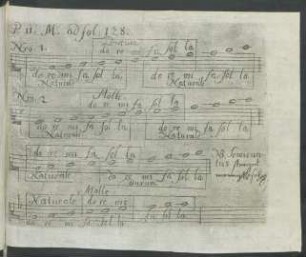 P. II. M. ad fol. 128.
Nro. 1. Durum
do re mi fa sol la
do re mi fa sol la do re mi fa sol la
Naturale Naturale
Nro. 2 Molle
do re mi fa sol la
do re mi fa sol la do re mi fa sol la
Naturale Naturale
do re mi fa sol la
Naturale do re mi fa sol la
durum
Molle
Naturale do re mi
fa sol la
do re mi fa sol la